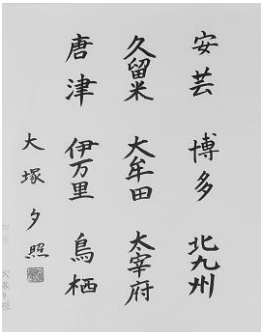 安芸 博多 北九州
久留米 大牟田 太宰府
唐津 伊万里 鳥栖
大塚夕照